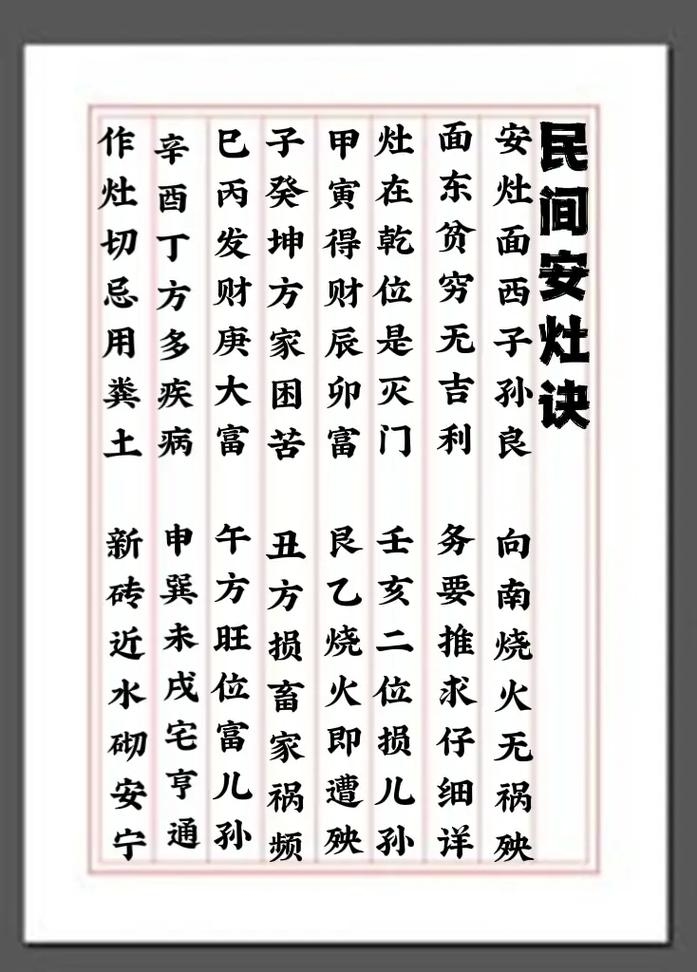 民间安灶诀
安灶面西子孙良 向南烧火无祸殃
面东贫穷无吉利 务要推求仔细详
灶在乾位是灭门 壬亥二位损儿孙
甲寅得财辰卯富 艮乙烧火即遭殃
子癸坤方家困苦 丑方损畜家祸频
巳丙发财庚大富 午方旺位富儿孙
辛酉丁方多疾病 申巽未戌宅亨通
作灶切忌用粪土 新砖近水砌安宁